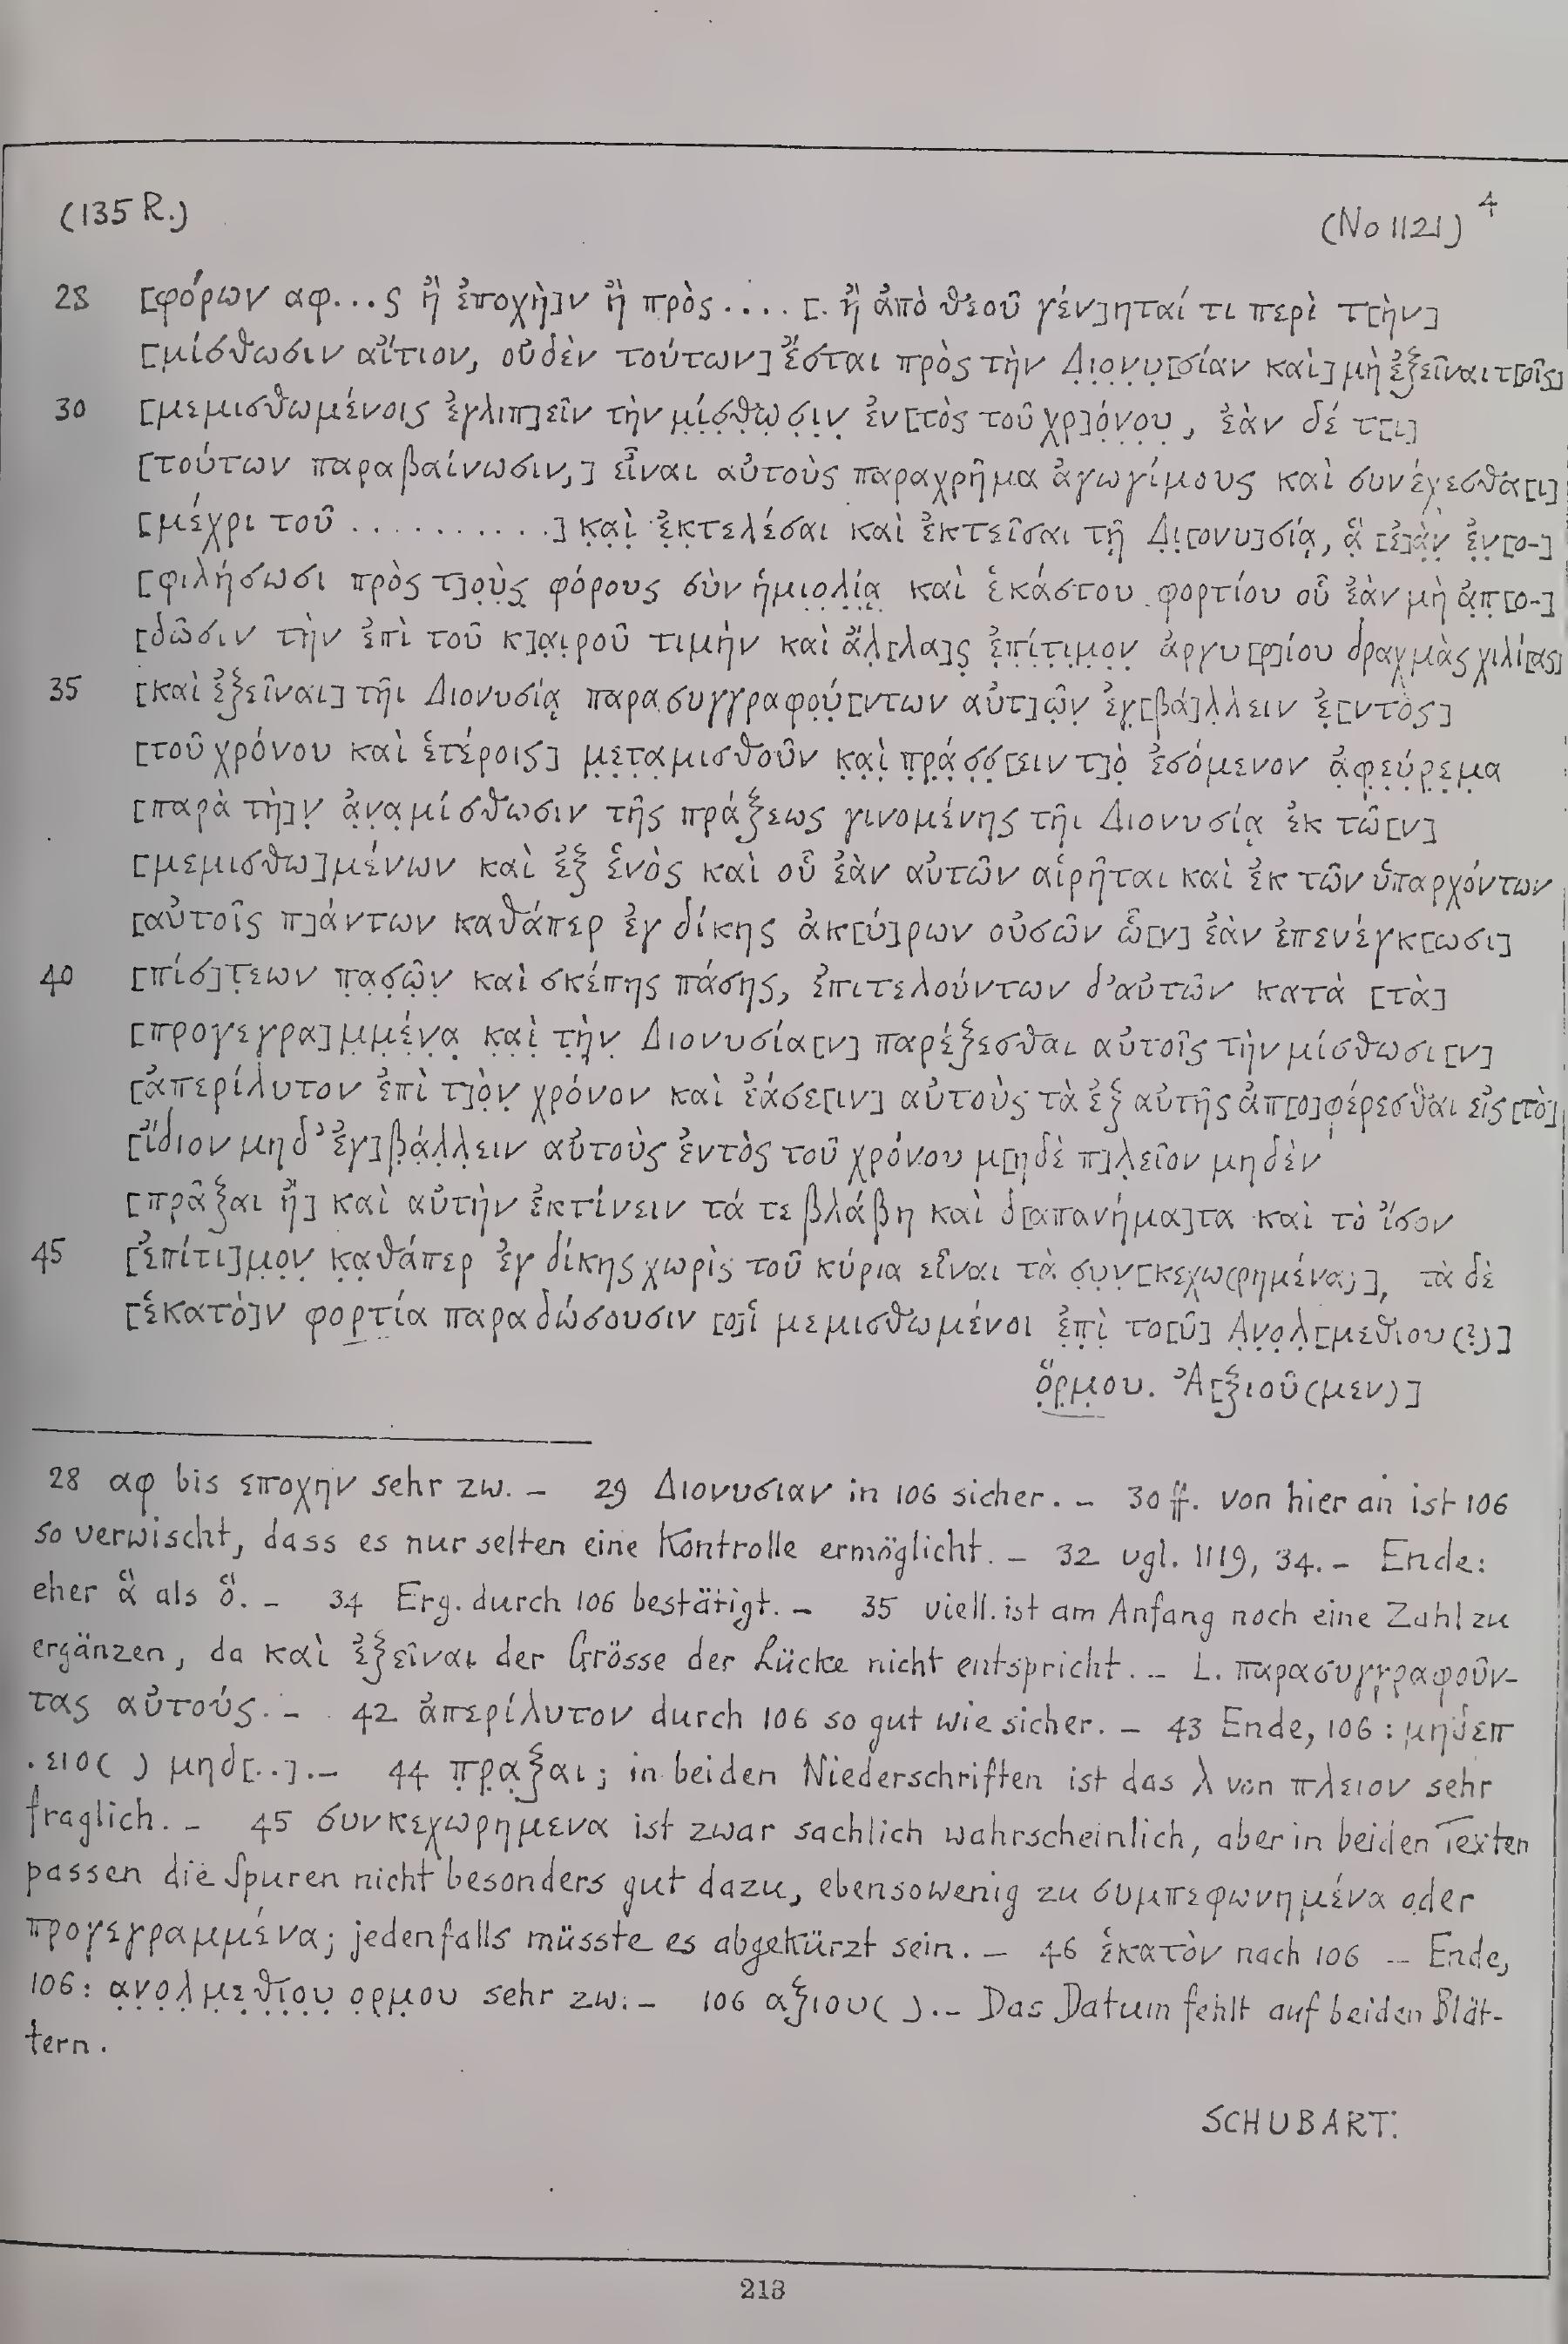 (135 R.) (No 1121) 4
28 [φόρων αφ...ς ἢ ἐποχὴ]ν ἢ πρὸς .... [. ἢ ἀπὸ θεοῦ γέν]ηταί τι περὶ τ[ὴν]
[μίσθωσιν αἴτιον, οὐδὲν τούτων] ἔσται πρὸς τὴν Δ̣ι̣ο̣ν̣υ̣[σίαν καὶ] μὴ ἐξεῖναι τ[οῖς]
30 [μεμισθωμένοις ἐγλιπ]εῖν τὴν μ̣ί̣σ̣θ̣ω̣σ̣ι̣ν̣ ἐν[τὸς τοῦ χρ]ό̣ν̣ο̣υ̣, ἐὰν δέ τ[ι]
[τούτων παραβαίνωσιν,] εἶναι αὐτοὺς παραχρῆμα ἀγωγίμους καὶ συνέχεσθα[ι]
[μέχρι τοῦ ..........] κ̣α̣ὶ̣ ἐ̣κ̣τελέσαι καὶ ἐκτεῖσαι τῇ Δ̣ι̣[ονυ]σίᾳ, ἃ̣ [ἐ]ὰ̣ν̣ ἐ̣ν̣[ο-]
[φιλήσωσι πρὸς τ]ο̣ὺ̣ς̣ φόρους σὺν ἡμι̣ο̣λ̣ί̣ᾳ̣ καὶ ἑκάστου φορτίου οὗ ἐὰν μὴ ἀ̣π̣[ο-]
[δῶσιν τὴν ἐπὶ τοῦ κ]α̣ι̣ροῦ τιμὴν καὶ ἄλ̣[λα]ς̣ ἐ̣π̣ί̣τ̣ι̣μ̣ο̣ν̣ ἀργυ[ρ]ίου δραχμὰς χιλί[ας]
35 [καὶ ἐξεῖναι] τῆι Διονυσίᾳ παρασυγγραφο̣ύ̣[ντων αὐτ]ῶ̣ν̣ ἐγ̣[βά]λ̣λειν ἐ̣[ντὸς]
[τοῦ χρόνου καὶ ἑτέροις] μ̣ε̣τ̣α̣μισθοῦν κ̣α̣ὶ̣ π̣ρ̣ά̣σ̣σ̣[ειν τ]ὸ̣ ἐσόμενον ἀ̣φ̣ε̣ύ̣ρ̣ε̣μ̣α
[παρὰ τὴ]ν̣ ἀ̣ν̣α̣μίσθωσιν τῆς πράξεως γινομένης τῆι Διονυσίᾳ ἐκ τῶ[ν]
[μεμισθω]μένων καὶ ἐξ ἑνὸς καὶ οὗ ἐὰν αὐτῶν αἱρῆται καὶ ἐκ τῶν ὑπαρχόντων
[αὐτοῖς π]άντων καθάπερ ἐγ δίκης ἀκ[ύ]ρων οὐσῶν ὧ[ν] ἐὰν ἐπενέγκ[ωσι]
40 [πίσ]τ̣εων π̣α̣σ̣ῶ̣ν̣ καὶ σκέπης πάσης, ἐπιτελούντων δ'αὐτῶν κατὰ [τὰ]
[προγεγρα]μ̣μ̣έ̣ν̣α̣ κ̣α̣ὶ̣ τ̣ὴ̣ν̣ Διονυσία[ν] παρέξεσθαι αὐτοῖς τὴν μίσθωσι[ν]
[ἀπερίλυτον ἐπὶ τ]ὸ̣ν̣ χρόνον καὶ ἐάσε[ιν] αὐτοὺς τὰ ἐξ αὐτῆς ἀπ[ο]φέρεσθαι εἰς [τὸ]
[ἴδιον μηδ' ἐγ]β̣ά̣λ̣λ̣ειν αὐτοὺς ἐντὸς τοῦ χρόνου μ[ηδὲ π]λ̣εῖον μηδὲν
[πρᾶξαι ἢ] καὶ αὐτὴν ἐκτίνειν τά τε βλάβη καὶ δ[απανήμα]τα καὶ τὸ ἴσον
45 [ἐπίτι]μ̣ο̣ν̣ κ̣α̣θάπερ ἐγ δίκης χωρὶς τοῦ κύρια εἶναι τὰ σ̣υ̣ν̣[κεχω(ρημένα;)], τὰ δὲ
[ἑκατὸ]ν φορτία παραδώσουσιν [ο]ἱ μεμισθωμένοι ἐ̣π̣ὶ̣ το[ῦ] Ἀ̣ν̣ο̣λ̣[μεθιου(?)]
ὅ̣ρ̣μ̣ου. Ἀ[ξιοῦ(μεν)]
28 αφ bis εποχην sehr zw. – 29 Διονυσιαν in 106 sicher. – 30 ff. von hier an ist 106
so verwischt, dass es nur selten eine Kontrolle ermöglicht. – 32 vgl. 1119, 34. – Ende:
eher ἃ als ὅ. – 34 Erg. durch 106 bestätigt. – 35 viell. ist am Anfang noch eine Zahl zu
ergänzen, da καὶ ἐξεῖναι der Grösse der Lücke nicht entspricht. – L. παρασυγγραφοῦν-
τας αὐτούς. – 42 ἀπερίλυτον durch 106 so gut wie sicher. – 43 Ende, 106: μηδεπ
.ειο( ) μηδ[..]. – 44 π̣ρ̣α̣ξαι; in beiden Niederschriften ist das λ von πλειον sehr
fraglich. – 45 συνκεχωρημενα ist zwar sachlich wahrscheinlich, aber in beiden Texten
passen die Spuren nicht besonders gut dazu, ebensowenig zu συμπεφωνημένα oder
προγεγραμμένα; jedenfalls müsste es abgekürzt sein. – 46 ἑκατὸν nach 106 – Ende,
106: α̣ν̣ο̣λ̣μ̣ε̣θ̣ι̣ο̣υ̣ ο̣ρ̣μ̣ου sehr zw. – 106 αξιου( ). – Das Datum fehlt auf beiden Blät-
tern.
SCHUBART.
213